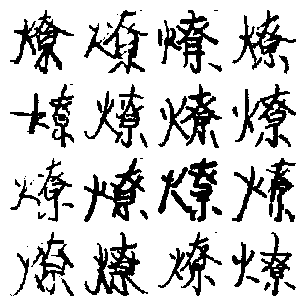 燎燎燎燎
燎燎燎燎
燎燎燎燎
燎燎燎燎